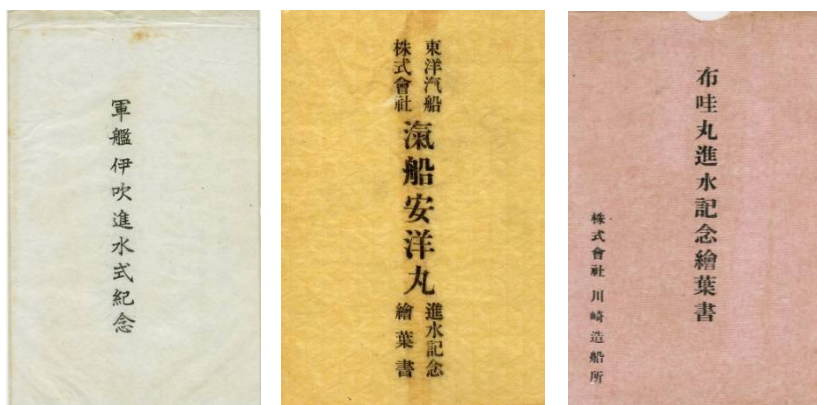 軍艦伊吹進水式紀念
東洋汽船
株式會社
滊船安洋丸
進水記念
繪葉書
布哇丸進水記念繪葉書
株式會社 川崎造船所